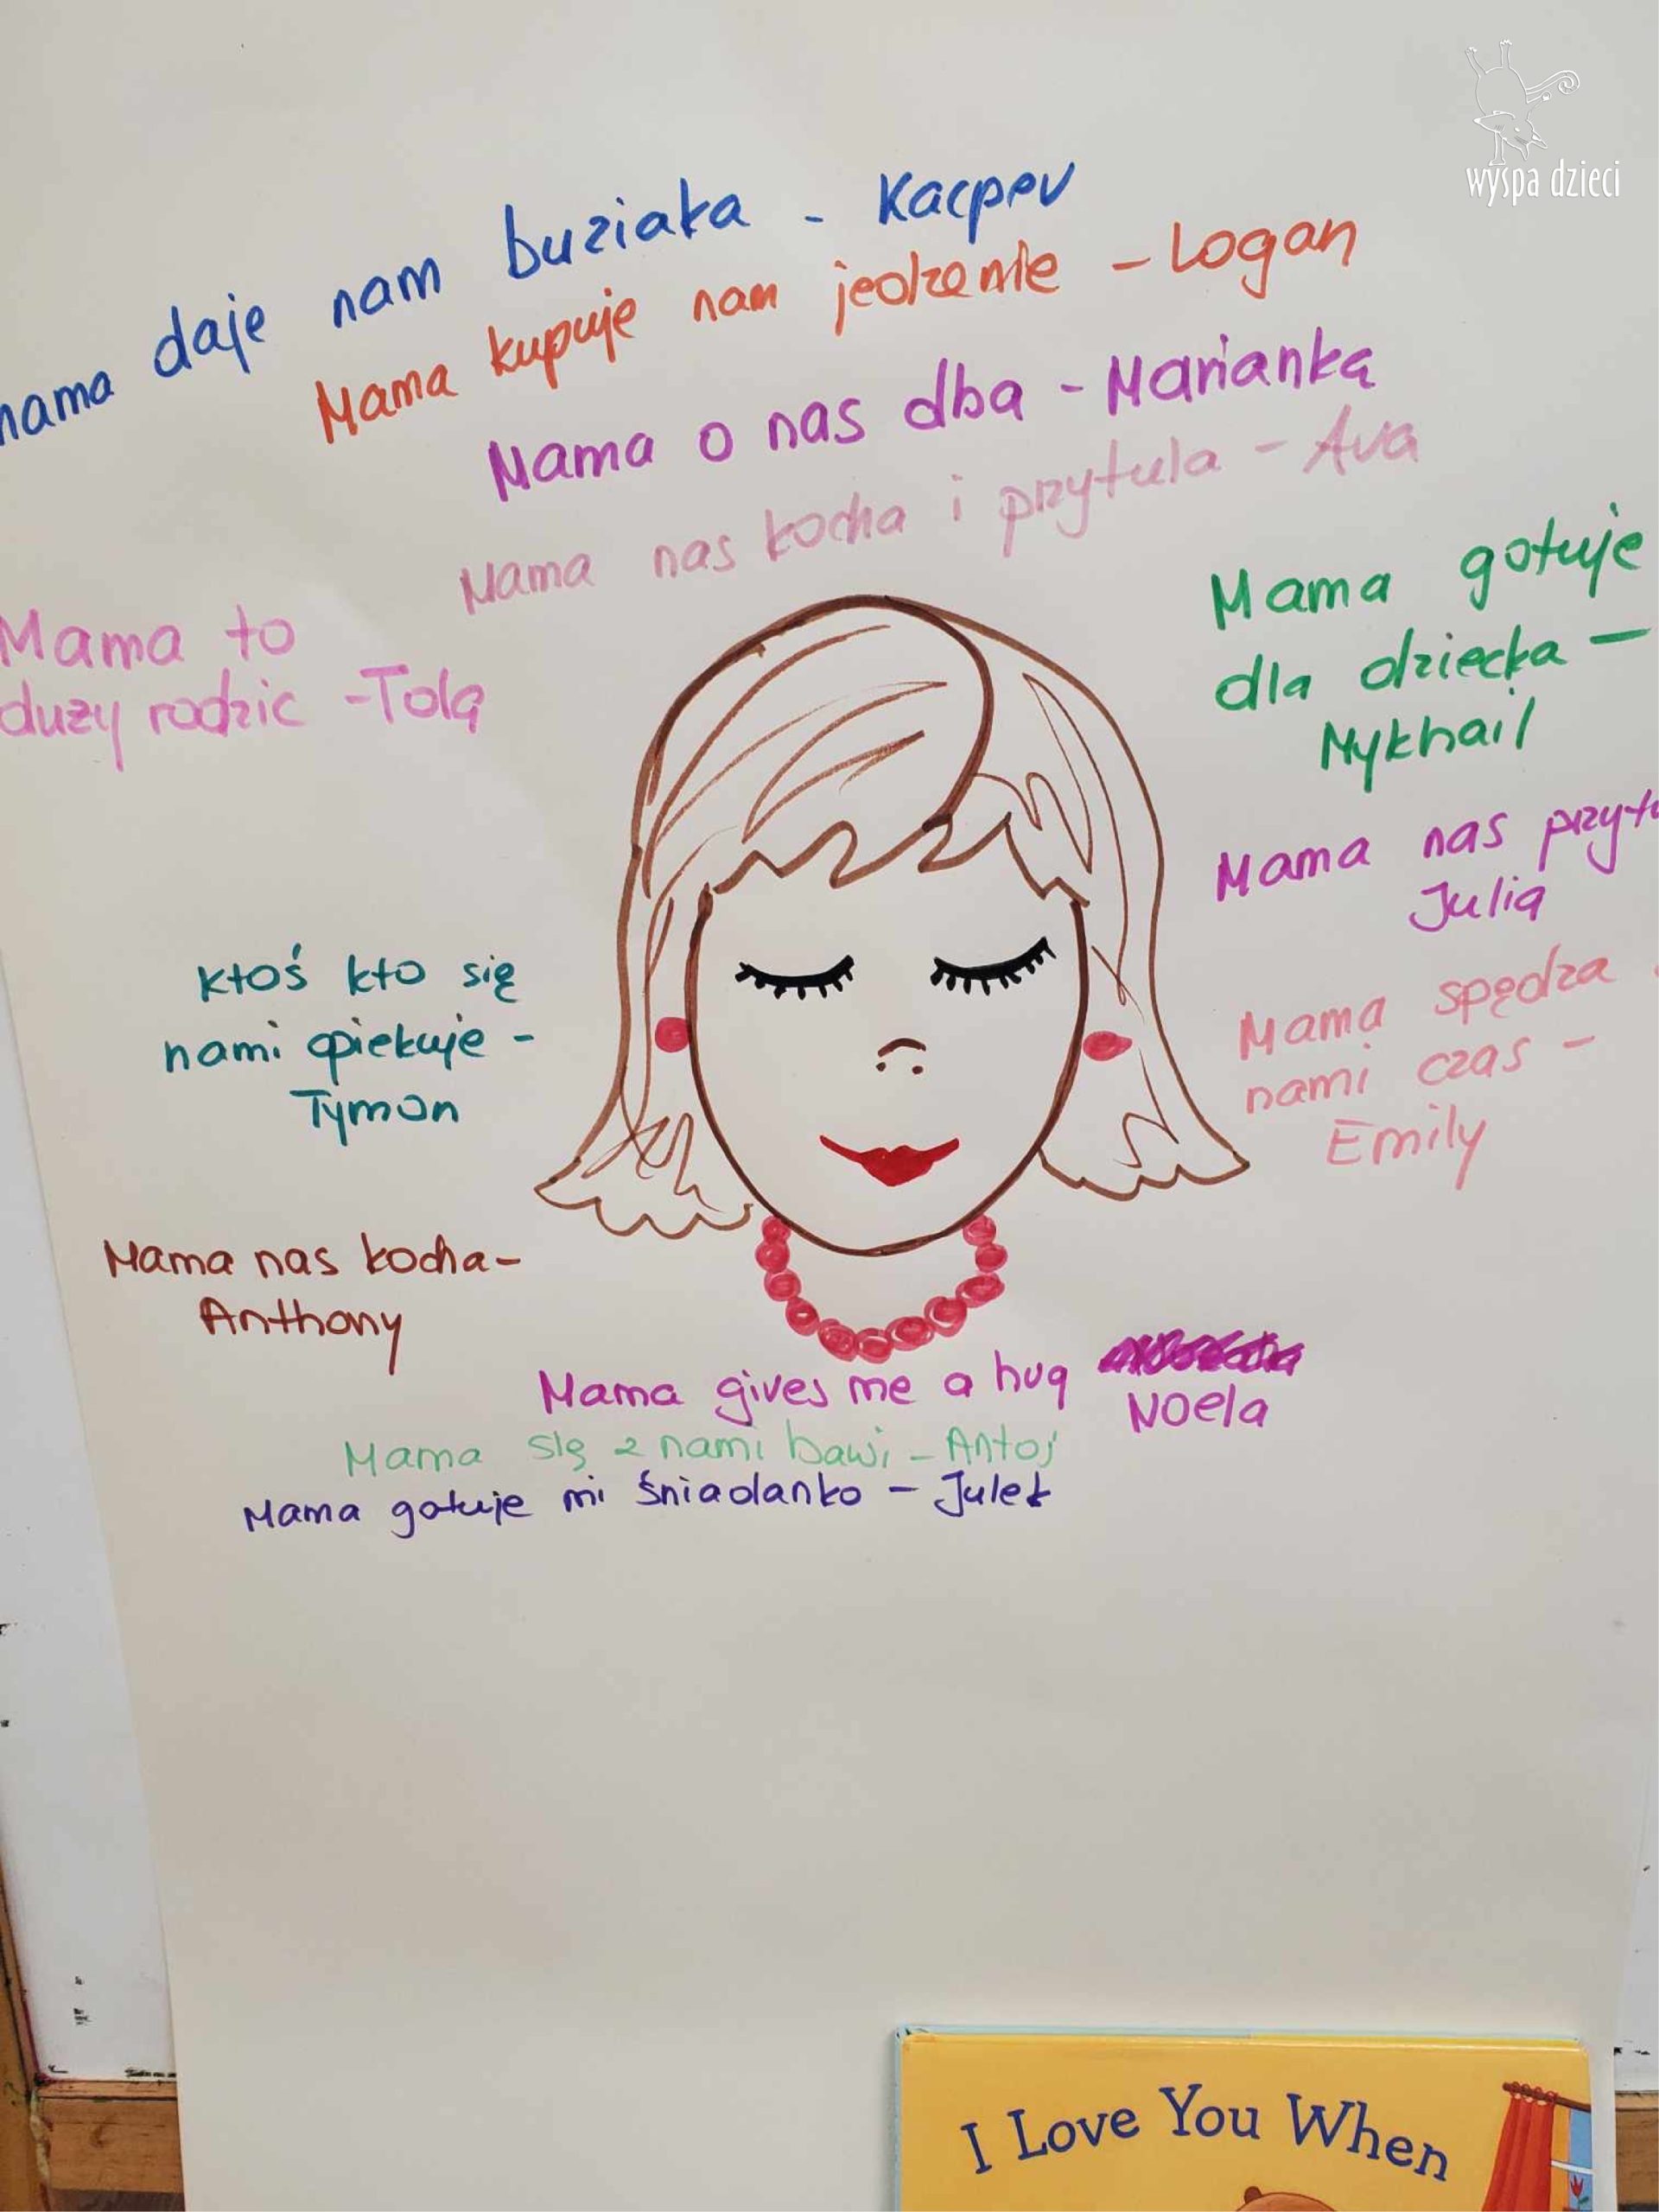 wyspa dzieci
mama daje nam buziaka - Kacper
Mama kupuje nam jedzenie - Logan
Mama o nas dba - Marianka
Mama nas kocha i przytula - Ava
Mama to
duży rodzic - Tola
Mama gotuje
dla dziecka -
Mykhail
Mama nas przytu
Julia
Mama spędza
nami czas -
Emily
ktoś kto się
nami opiekuje -
Tymon
Mama nas kocha -
Anthony
Mama gives me a hug
Noela
Mama się z nami bawi - Antoj
Mama gotuje mi śniadanko - Julek
I Love You When